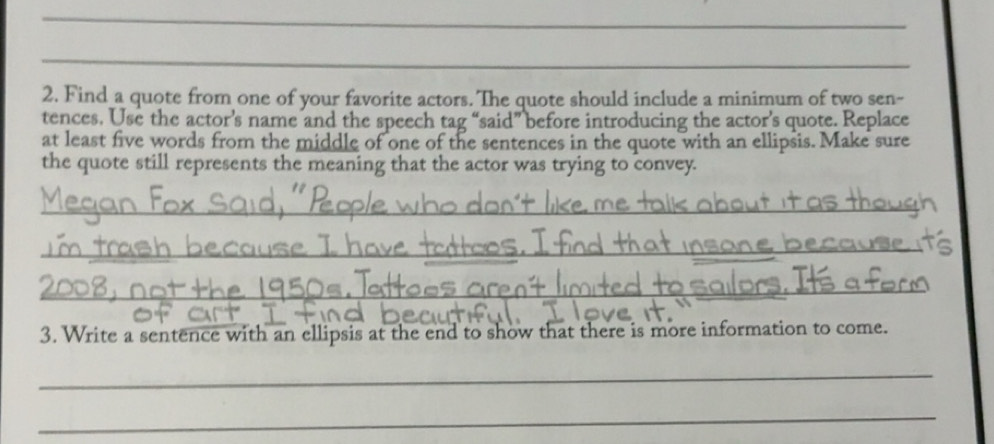 2. Find a quote from one of your favorite actors. The quote should include a minimum of two sen-
tences. Use the actor's name and the speech tag "said" before introducing the actor's quote. Replace
at least five words from the middle of one of the sentences in the quote with an ellipsis. Make sure
the quote still represents the meaning that the actor was trying to convey.
Megan Fox said, "People who don't like me talk about it as though
im trash because I have tattoos. I find that insane because it's
2008, not the 1950s. Tattoos aren't limited to sailors. It's a form
of art I find beautiful. I love it."
3. Write a sentence with an ellipsis at the end to show that there is more information to come.